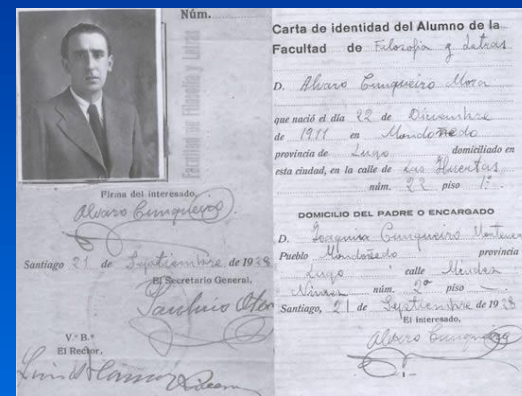 Núm.
Facultad de Filosofía y Letras
Firma del interesado,
Alvaro Cunqueiro
Santiago 21 de Septiembre de 1928
El Secretario General,
Paulino
V.º B.º
El Rector,
Luis Blanco
Carta de identidad del Alumno de la
Facultad de Filosofía y Letras
D. Alvaro Cunqueiro Mora
que nació el día 22 de Diciembre
de 1911 en Mondoñedo
provincia de Lugo domiciliado en
esta ciudad, en la calle de las Huertas
núm. 22 piso 1º
DOMICILIO DEL PADRE O ENCARGADO
D. Joaquin Cunqueiro Montenegro
Pueblo Mondoñedo provincia
Lugo calle Mendez
Nuñez núm. 2º piso —
Santiago, 21 de Septiembre de 1928
El interesado,
Alvaro Cunqueiro